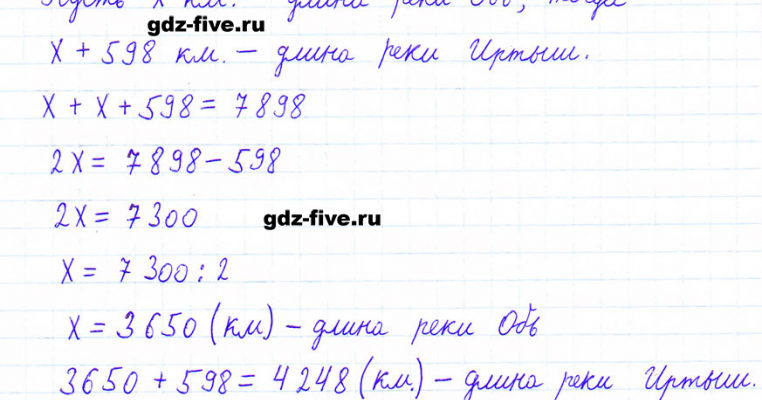 Пусть x км. - длина реки Обь, тогда
gdz-five.ru
x + 598 км. – длина реки Иртыш.
x + x + 598 = 7898
2x = 7898 – 598
2x = 7300
gdz-five.ru
x = 7300 : 2
x = 3650 (км) – длина реки Обь
3650 + 598 = 4248 (км.) – длина реки Иртыш.